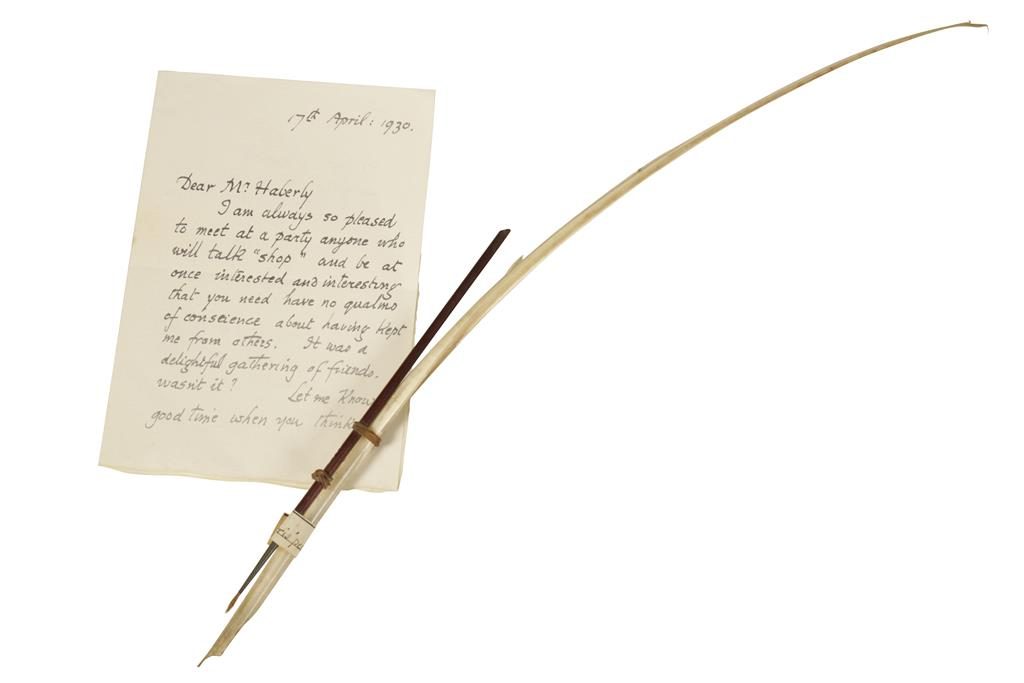 17th April: 1930.
Dear Mr. Haberly
I am always so pleased
to meet at a party anyone who
will talk "shop" and be at
once interested and interesting
that you need have no qualms
of conscience about having kept
me from others. It was a
delightful gathering of friends.
wasn't it? Let me know
good time when you think